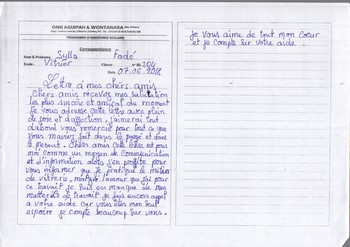 ONG AGUIPAH & WONTANARA
PROGRAMME D'ASSISTANCE SCOLAIRE
Correspondance
Nom & Prénoms: Sylla Fadé
Ecole: Vitrier Classe N° ID: 204
Date: 07.06.2018
Lettre à mes chers amis
chers amis recevez mes salutation
les plus sincère et amical du moment
Je vous adresse cette lettre avec plein
de joie et d'affection, j'aimerai tout
d'abord vous remercie pour tout ce que
vous maviez fait dans le passé et dans
le présent. Chers amis cette lettre est pour
moi comme un moyen de communication
et d'information alors j'en profite pour
vous informer que je pratique le métier
de vitrerie, malgré l'amour que j'ai pour
ce travail je suis en manque de mes
matériels de travail je fais encore appel
a votre aide car vous êtes mon seul
espoire je compte beaucoup sur vous.
je vous aime de tout mon coeur
et je compte sur votre aide.